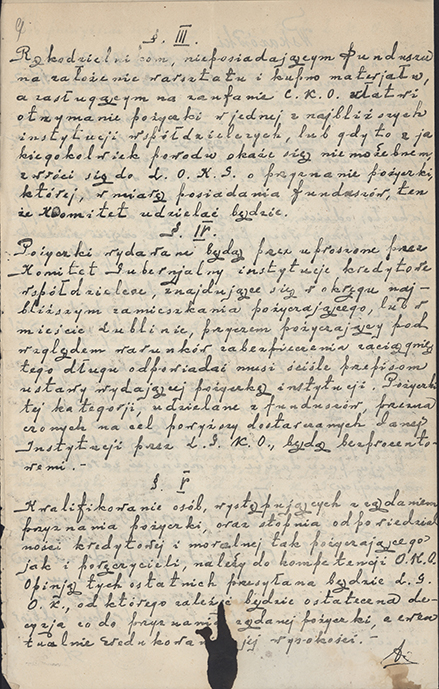 §. III.
Rękodzielnikom, nieposiadającym funduszu
na założenie warsztatu i kupno materjałów,
a zasługującym na zaufanie C.K.O. ułatwi
otrzymanie pożyczki w jednej z najbliższych
instytucji współdzielczych, lub gdy to z ja
kiegokolwiek powodu okaże się niemożebnem,
zwróci się do L.O.K.G. o przyznanie pożyczki,
której, w miarę posiadania funduszów, ten
że Komitet udzielać będzie.
§. IV.
Pożyczki wydawane będą przez uproszone przez
Komitet Gubernjalny instytucje kredytowe
współdzielcze, znajdujące się w okręgu naj-
bliższym zamieszkania pożyczającego, lub w
mieście Lublinie, przyczem pożyczający pod
względem warunków zabezpieczenia zaciągnię
tego długu odpowiadać musi ściśle przepisom
ustawy wydającej pożyczkę instytucji. Pożyczki
tej kategorji, udzielane z funduszów, przezna
czonych na cel powyższy dostarczanych danej
Instytucji przez L.G.K.O., będą bezprocento-
wemi.-
§. V
Kwalifikowanie osób, występujących z żądaniem
przyznania pożyczki, oraz stopnia odpowiedzial
ności kredytowej i moralnej tak pożyczającego
jak i poręczycieli, należy do kompetencji O.K.O.
Opinja tych ostatnich przesyłana będzie L.G.
O.K., od którego zależeć będzie ostateczna de-
cyzja co do przyznania żądanej pożyczki, a ewen
tualnie zredukowania jej wysokości.-